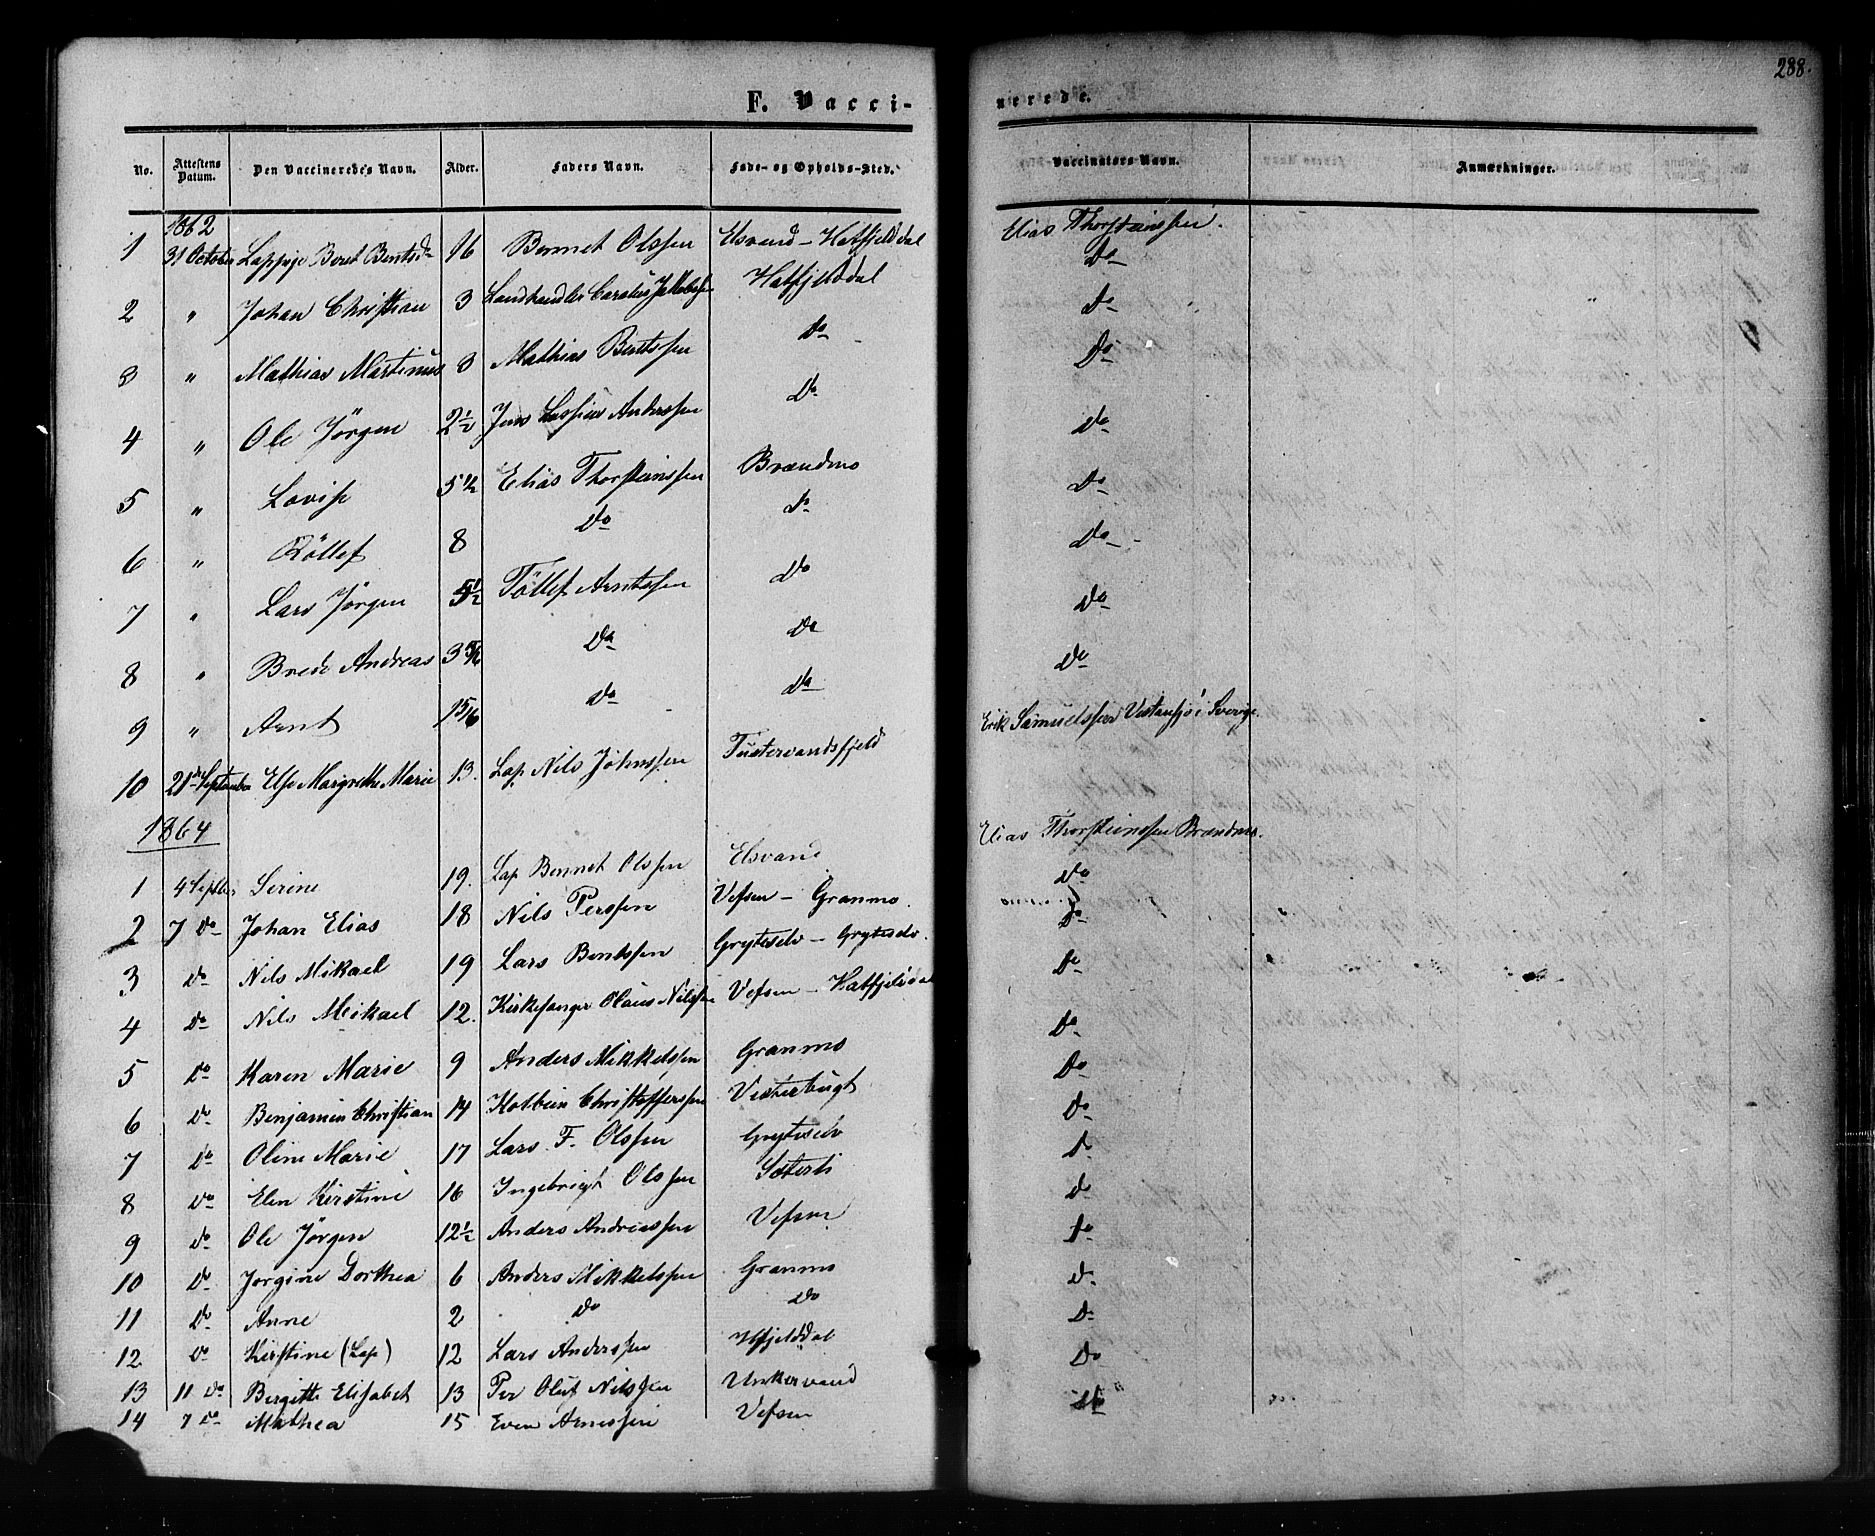 288.
F. Vacci-
nerede.
No. Attestens Datum. Den Vaccineredes Navn. Alder. Faders Navn. Føde- og Opholds-Sted. Vaccinators Navn. Anmærkninger.
1862
1 31 October Lappige Beret Bentsd 16 Bennet Olssen Elsvand - Hatfjelddal Elias Thorsteinssen.
2 " Johan Christian 3 Landhandler Jakobss Hatfjelddal Do
3 " Mathias Martinus 3 Mathias Bentssen Do Do
4 " Ole Jörgen 2½ Jens Anderssen Do Do
5 " Lovise 5½ Elias Thorsteinssen Brændmo Do
6 " Röllef 8 Do Do Do
7 " Lars Jörgen 5½ Töllef Arntssen Do Do
8 " Brede Andreas 3 Do Do Do
9 " Arnt Do Do Do
10 21de September Else Margrethe Marie 13. Lap Nils Johnssen Tustervandsfjeld Erik Samuelssen i Sverige.
1864
1 4 Septbr Serine 19. Lap Bennet Olssen Elsvand Elias Thorsteinssen Brændmo.
2 7 Do Johan Elias 18 Nils Perssen Vefsen - Granmo. Do
3 Do Nils Mikael 19 Lars Bentssen Gryteselv - Gryteselv. Do
4 Do Nils Meikael 12. Kirkesanger Olaus Nilssen Vefsen - Hatfjelddal Do
5 Do Karen Marie 9 Anders Mikkelssen Granmo Do
6 Do Benjamin Christian 14 Kolbein Christofferssen Vesterbugt Do
7 Do Oline Marie 17 Lars F. Olssen Gryteselv Do
8 Do Elen Kirstine 16 Ingebrigt Olssen Sæterli Do
9 Do Ole Jörgen 12½ Anders Andreassen Vefsen Do
10 Do Jorgine Dorthea 6 Anders Mikkelssen Granmo Do
11 Do Anne 2 Do Do Do
12 Do Kirstine (Lap) 12 Lars Anderssen Hfjelddal Do
13 11 Do Birgitte Elisabet 13 Per Oluf Nilssen Unkervand Do
14 7 Do Mathea 15 Even Arnessen Vefsen Do